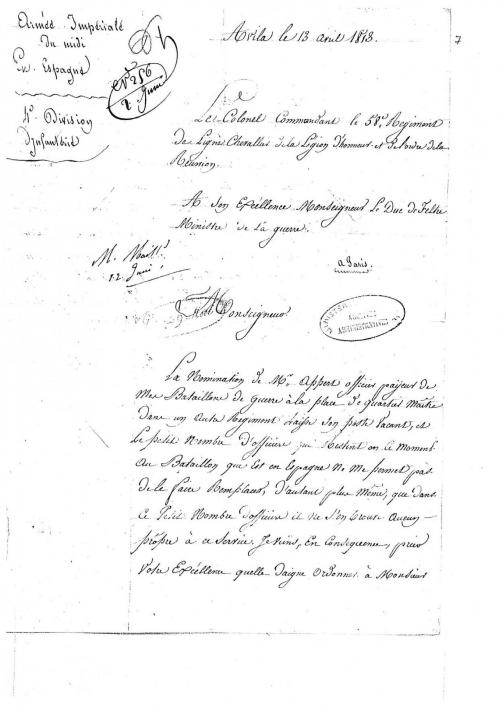 Armée Impériale
du midi
En Espagne
4e. Division
D'Infanterie
No. 256
2 Juin
Avila le 13 avril 1813.
7
Le Colonel Commandant le 58e. Regiment
de Ligne Chevallier de la Légion d'honneur et de l'ordre de la
Réunion.
A Son Excellence Monseigneur Le Duc de Feltre
Ministre de la guerre.
a Paris.
M.
12 Juin
Monseigneur
ARCHIVES
ADMINISTRATIVES
La Nomination de Mr. Appert officier payeur de
Mes Bataillons de Guerre à la place de quartier Maitre
dans un autre Regiment laisse son poste vacant, et
Le petit Nombre d'officiers qui Restent en ce Moment
au Bataillon qui est en Espagne ne me permet pas
de le faire Remplacer, d'autant plus même, que dans
Ce Petit Nombre d'officiers il ne s'en trouve aucun
propre à ce Service. Je viens, En Consequence, prier
Votre Excéllence quelle daigne ordonner à Monsieur